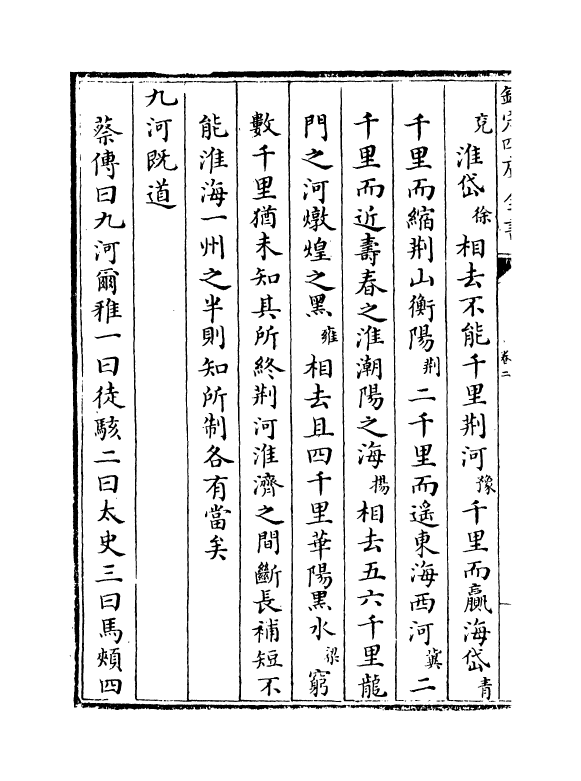 欽定四庫全書
卷二
兗淮岱徐相去不能千里荆河豫千里而贏海岱青
千里而縮荆山衡陽荆二千里而遥東海西河冀二
千里而近壽春之淮潮陽之海揚相去五六千里龍
門之河燉煌之黑雍相去且四千里華陽黒水梁窮
數千里猶未知其所終荆河淮濟之間斷長補短不
能淮海一州之半則知所制各有當矣
九河既道
蔡傳曰九河爾雅一曰徒駭二曰太史三曰馬頰四